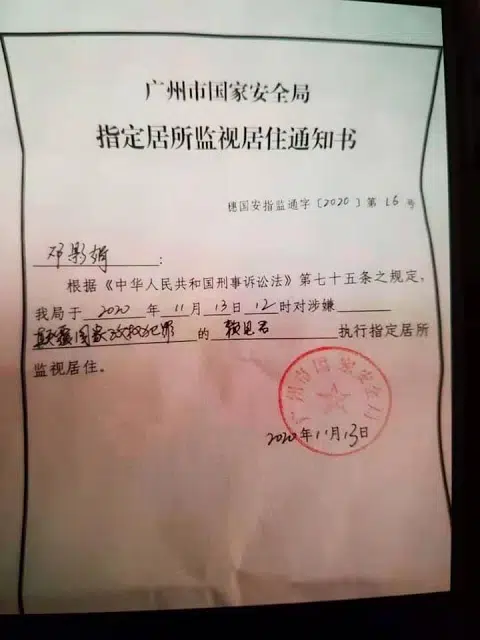 广州市国家安全局
指定居所监视居住通知书
穗国安指监通字〔2020〕第 16 号
邓影娟：
根据《中华人民共和国刑事诉讼法》第七十五条之规定，
我局于 2020 年 11 月 13 日 12 时对涉嫌
颠覆国家政权犯罪 的 赖见君 执行指定居所
监视居住。
广州市国家安全局
2020年11月13日